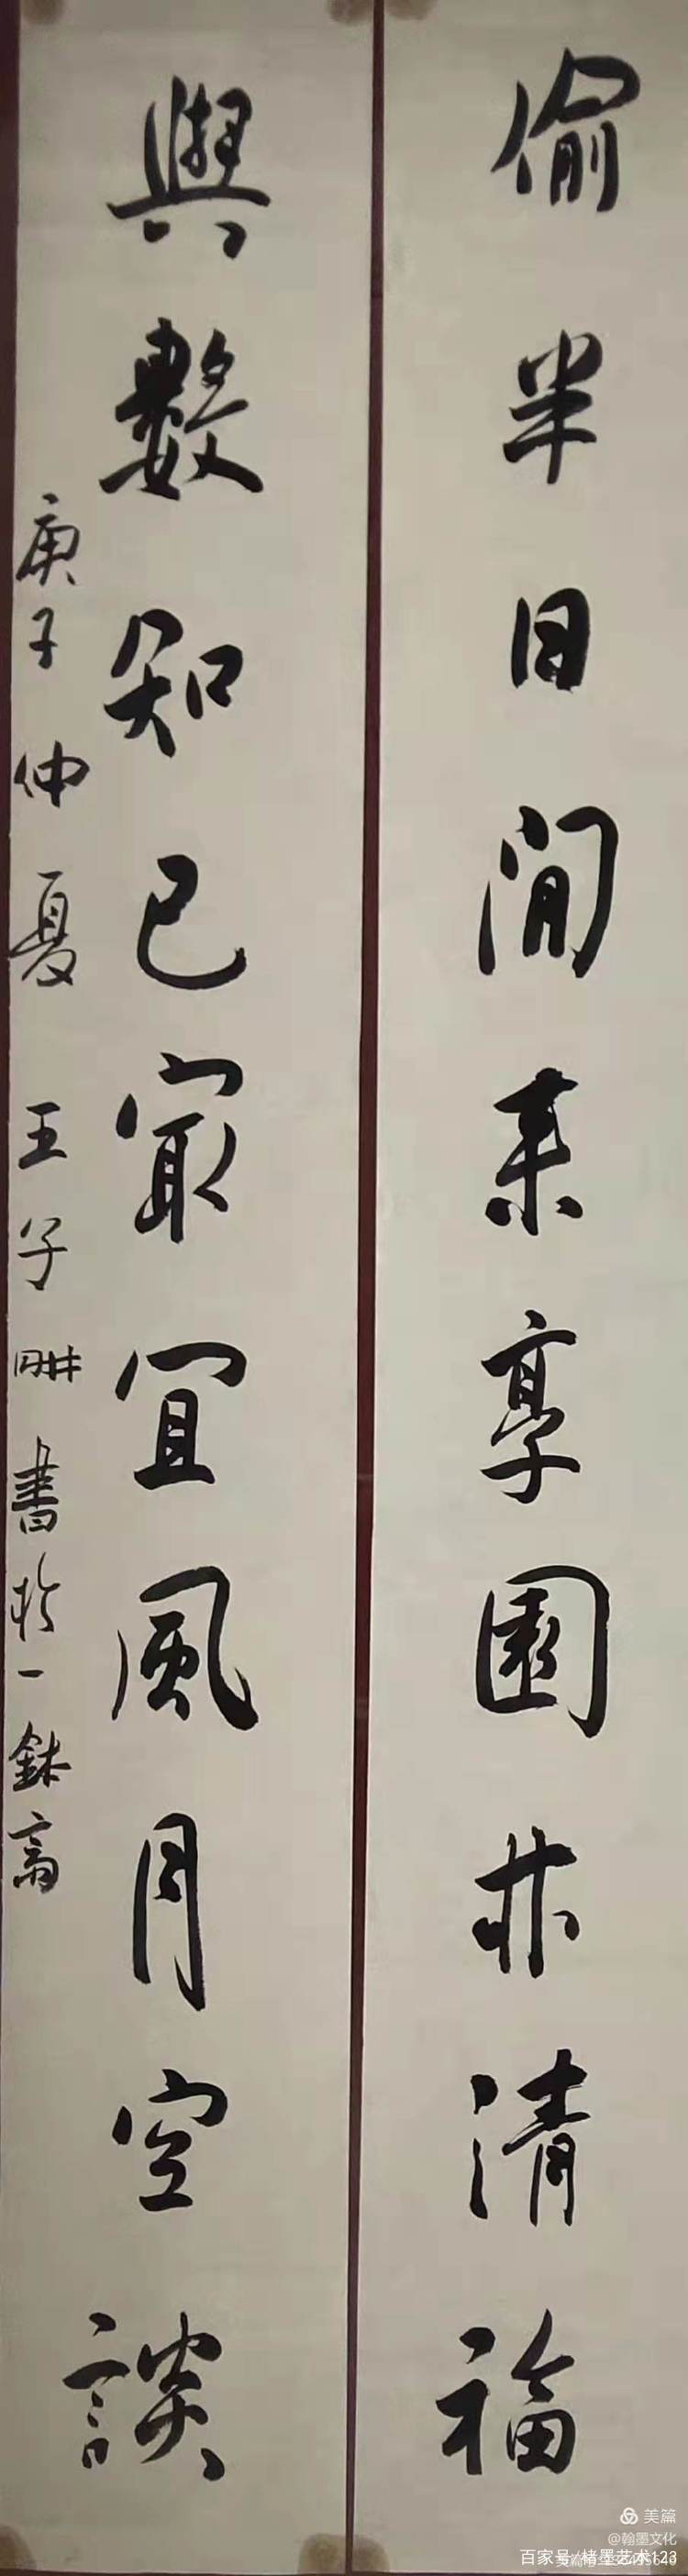 偷半日閒来享園林清福
與數知己寂宜風月空談
庚子仲夏 王子畊書於一鉢斋
美篇
@翰墨文化
百家号/楮墨艺术123